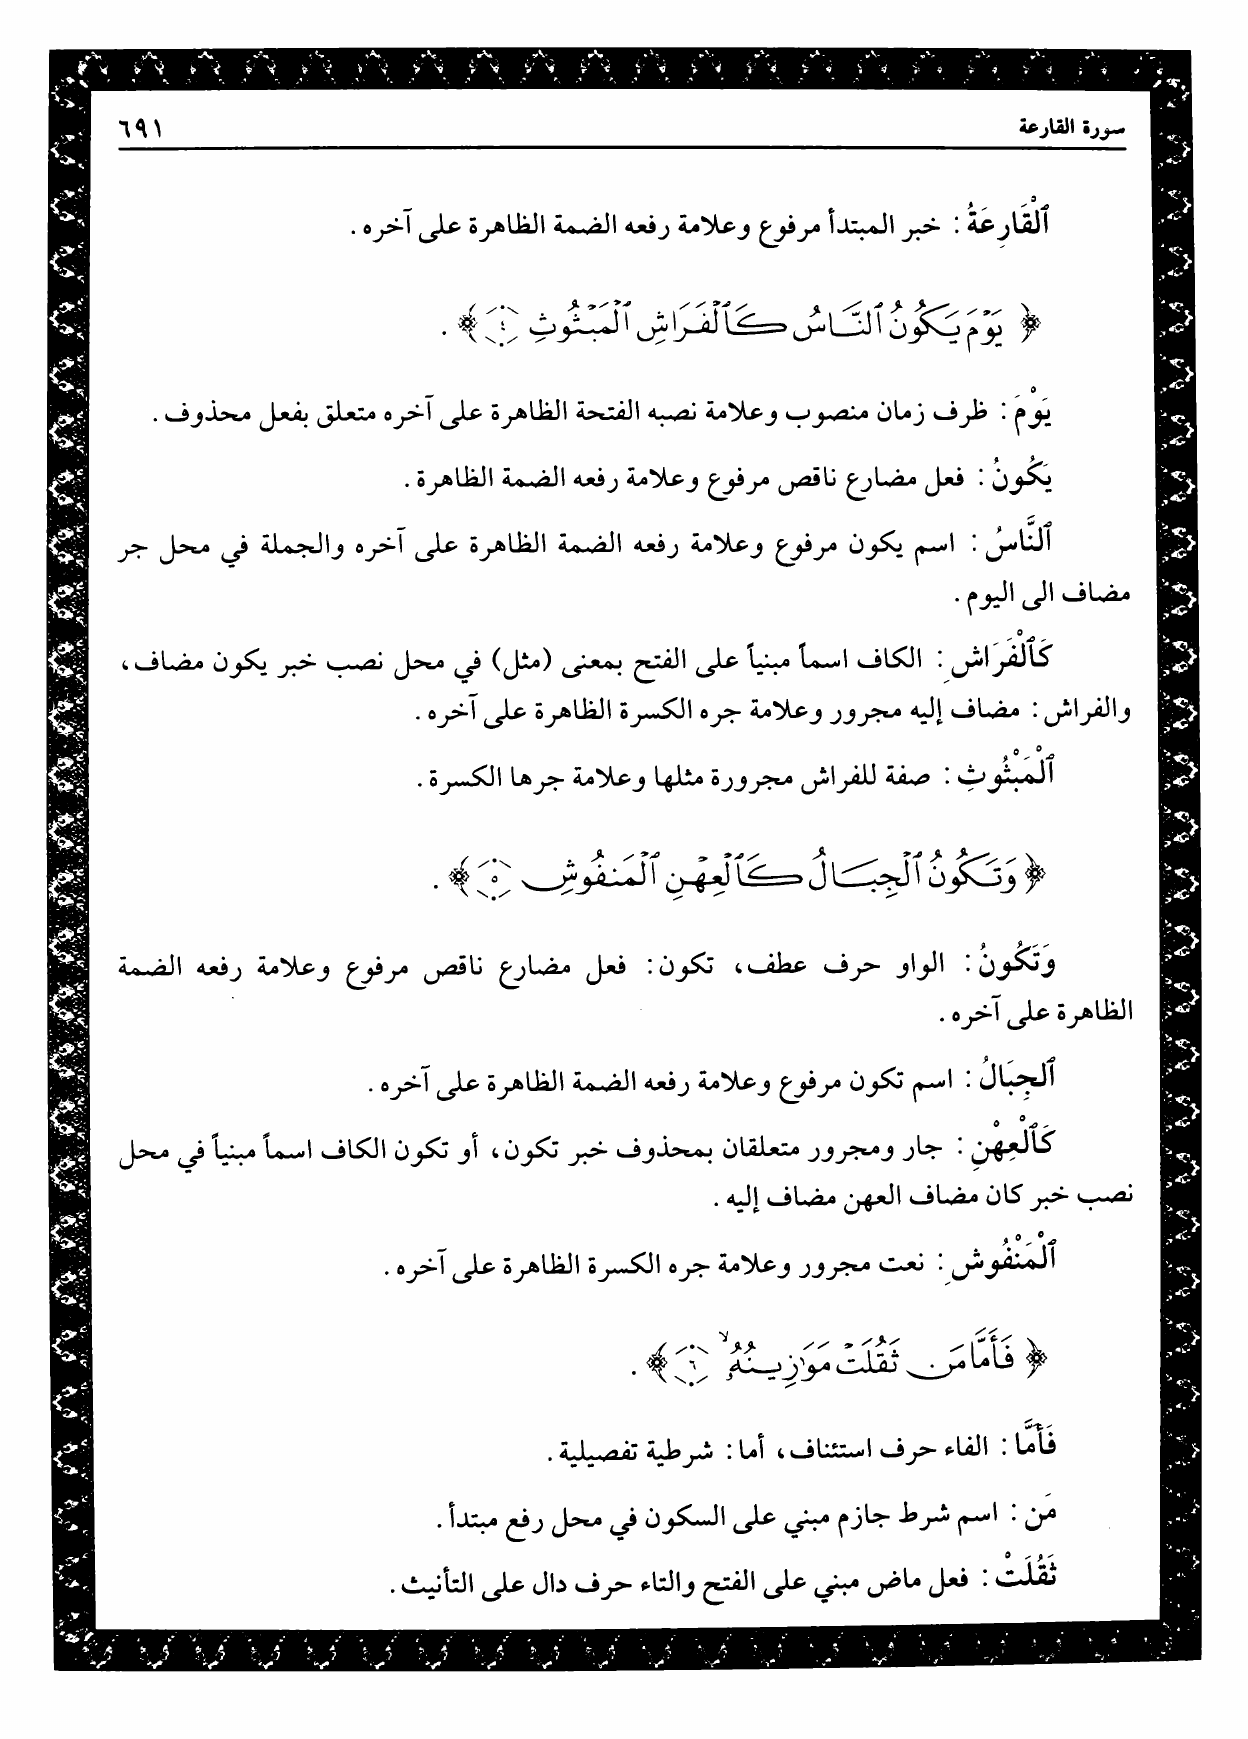 سورة القارعة ٦٩١
ٱلْقَارِعَةُ : خبر المبتدأ مرفوع وعلامة رفعه الضمة الظاهرة على آخره .
﴿ يَوْمَ يَكُونُ ٱلنَّاسُ كَٱلْفَرَاشِ ٱلْمَبْثُوثِ ٤ ﴾ .
يَوْمَ : ظرف زمان منصوب وعلامة نصبه الفتحة الظاهرة على آخره متعلق بفعل محذوف .
يَكُونُ : فعل مضارع ناقص مرفوع وعلامة رفعه الضمة الظاهرة .
ٱلنَّاسُ : اسم يكون مرفوع وعلامة رفعه الضمة الظاهرة على آخره والجملة في محل جر
مضاف الى اليوم .
كَٱلْفَرَاشِ : الكاف اسماً مبنياً على الفتح بمعنى (مثل) في محل نصب خبر يكون مضاف،
والفراش : مضاف إليه مجرور وعلامة جره الكسرة الظاهرة على آخره .
ٱلْمَبْثُوثِ : صفة للفراش مجرورة مثلها وعلامة جرها الكسرة .
﴿ وَتَكُونُ ٱلْجِبَالُ كَٱلْعِهْنِ ٱلْمَنفُوشِ ٥ ﴾ .
وَتَكُونُ : الواو حرف عطف، تكون: فعل مضارع ناقص مرفوع وعلامة رفعه الضمة
الظاهرة على آخره .
ٱلجِبَالُ : اسم تكون مرفوع وعلامة رفعه الضمة الظاهرة على آخره .
كَٱلْعِهْنِ : جار ومجرور متعلقان بمحذوف خبر تكون، أو تكون الكاف اسماً مبنياً في محل
نصب خبر كان مضاف العهن مضاف إليه .
ٱلْمَنْفُوشِ : نعت مجرور وعلامة جره الكسرة الظاهرة على آخره .
﴿ فَأَمَّا مَن ثَقُلَتْ مَوَٰزِينُهُۥ ۙ ٦ ﴾ .
فَأَمَّا : الفاء حرف استئناف، أما : شرطية تفصيلية .
مَن : اسم شرط جازم مبني على السكون في محل رفع مبتدأ .
ثَقُلَتْ : فعل ماض مبني على الفتح والتاء حرف دال على التأنيث .